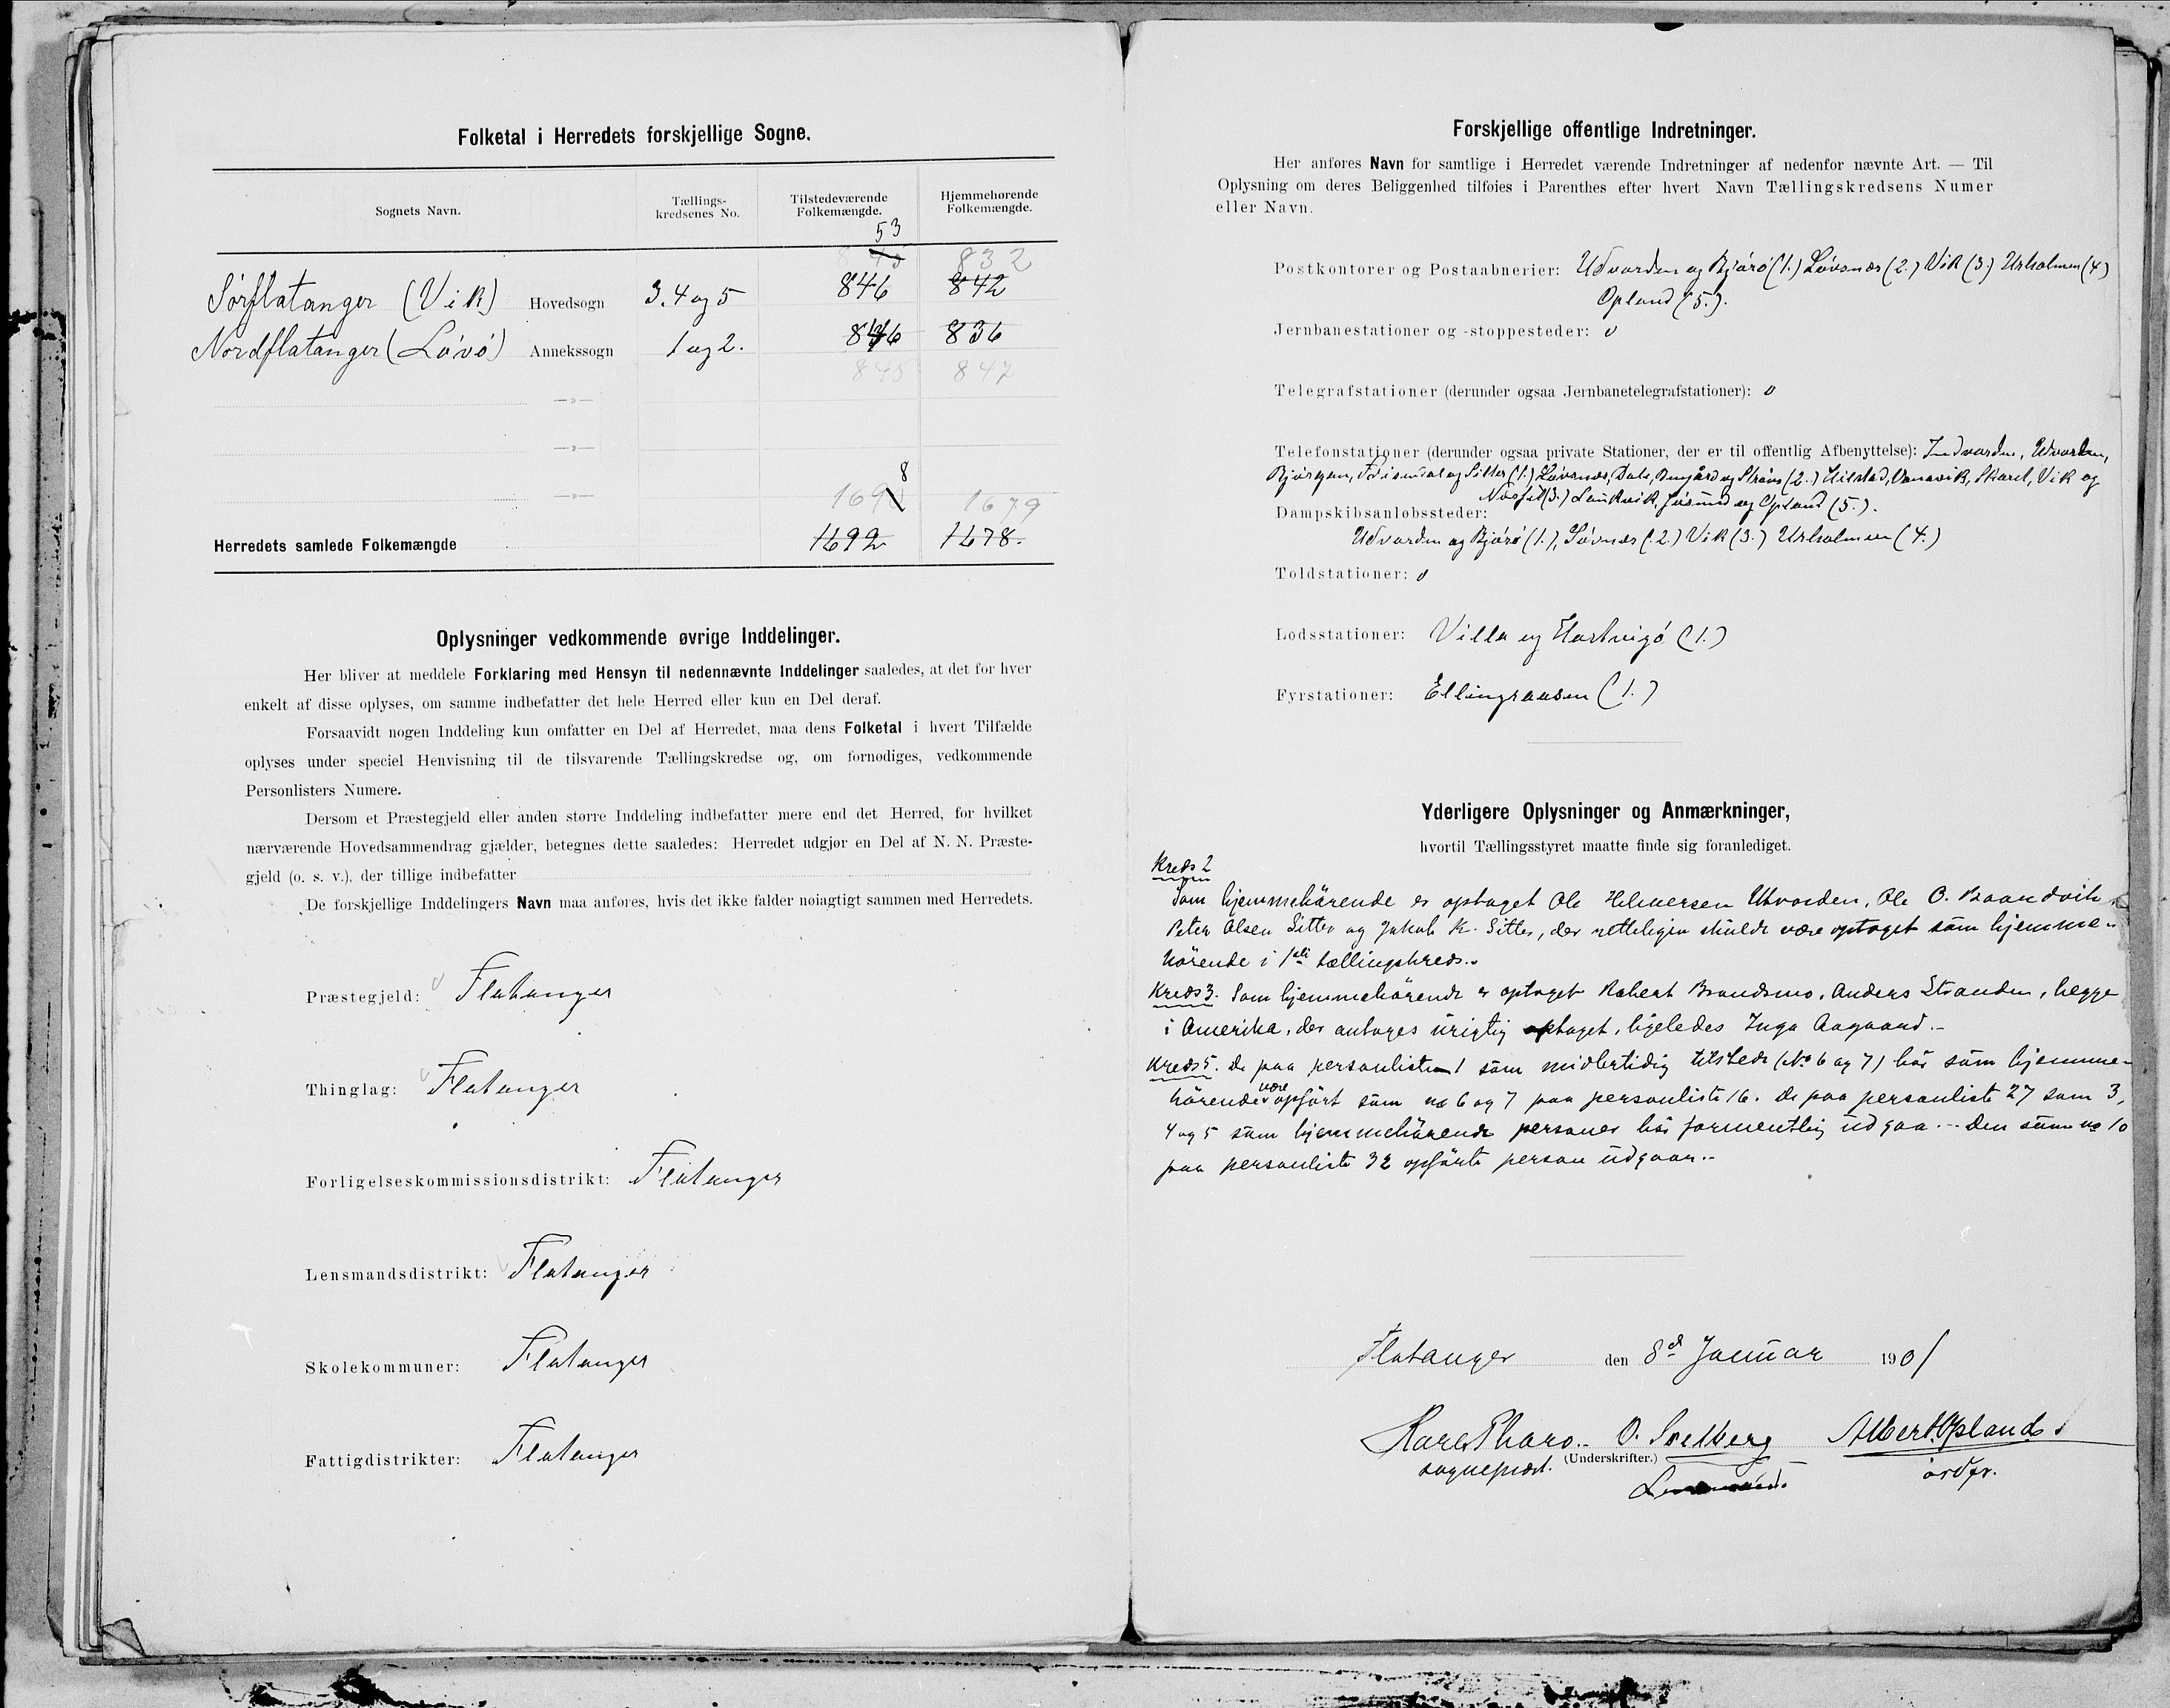 Folketal i Herredets forskjellige Sogne.
Sognets Navn.
Tællings-
kredsenes No.
Tilstedeværende
Folkemængde.
Hjemmehørende
Folkemængde.
53
832
Sørflatanger (Vik) Hovedsogn 3. 4 og 5 846 842
Nordflatanger (Løvø) Annekssogn 1 og 2. 846 836
845 847
—»—
—»—
8
—»— 169 1679
Herredets samlede Folkemængde 1692 1678.
Oplysninger vedkommende øvrige Inddelinger.
Her bliver at meddele Forklaring med Hensyn til nedennævnte Inddelinger saaledes, at det for hver
enkelt af disse oplyses, om samme indbefatter det hele Herred eller kun en Del deraf.
Forsaavidt nogen Inddeling kun omfatter en Del af Herredet, maa dens Folketal i hvert Tilfælde
oplyses under speciel Henvisning til de tilsvarende Tællingskredse og, om fornødiges, vedkommende
Personlisters Numere.
Dersom et Præstegjeld eller anden større Inddeling indbefatter mere end det Herred, for hvilket
nærværende Hovedsammendrag gjælder, betegnes dette saaledes: Herredet udgjør en Del af N. N. Præste-
gjeld (o. s. v.), der tillige indbefatter
De forskjellige Inddelingers Navn maa anføres, hvis det ikke falder nøiagtigt sammen med Herredets.
Præstegjeld: Flatanger
Thinglag: Flatanger
Forligelseskommissionsdistrikt: Flatanger
Lensmandsdistrikt: Flatanger
Skolekommuner: Flatanger
Fattigdistrikter: Flatanger
Forskjellige offentlige Indretninger.
Her anføres Navn for samtlige i Herredet værende Indretninger af nedenfor nævnte Art. — Til
Oplysning om deres Beliggenhed tilføies i Parenthes efter hvert Navn Tællingskredsens Numer
eller Navn.
Postkontorer og Postaabnerier: Udvorden og Bjørø (1.) Løvsnes (2.) Vik (3.) Urholmen (4)
Opland (5.).
Jernbanestationer og -stoppesteder: 0
Telegrafstationer (derunder ogsaa Jernbanetelegrafstationer): 0
Telefonstationer (derunder ogsaa private Stationer, der er til offentlig Afbenyttelse): Indvorden, Udvorden,
Bjørgan, og Sitter (1.) Løvsnes, Dale, og Strøm (2.) Hilstad, Vanavik, Skarel, Vik og
(3.) Lauvvik, Jøsund og Opland (5.).
Dampskibsanløbssteder:
Udvorden og Bjørø (1.), Løvsnes (2.) Vik (3.) Urholmen (4.)
Toldstationer: 0
Lodsstationer: Villa og Hartvigø (1.)
Fyrstationer: Ellingraasen (1.)
Yderligere Oplysninger og Anmærkninger,
hvortil Tællingsstyret maatte finde sig foranlediget.
Kreds 2
Som hjemmehørende er optaget Ole Hilmersen Utvorden, Ole O. Baandvik,
Peter Olsen Sitter og Jakob K. Sitter, der retteligen skulde være optaget som hjemme-
hørende i 1ste tællingskreds.
Kreds 3. Som hjemmehørende er optaget Robert Brandsmo, Anders Stranden, begge
i Amerika, der antages urigtig optaget, ligeledes Inga Aagaard.-
Kreds 5. De paa personliste 1 som midlertidig tilstede (No 6 og 7) bør som hjemme-
hørende være opført som no 6 og 7 paa personliste 16. De paa personliste 27 som 3,
4 og 5 som hjemmehørende personer bør formentlig udgaa.- Den som no 10
paa personliste 32 opførte person udgaar.-
Flatanger den 8de Januar 1901
Karl Tharo. O. Solberg Albert Opland
sogneprest. (Underskrifter.) ordfr.
Lensmand.